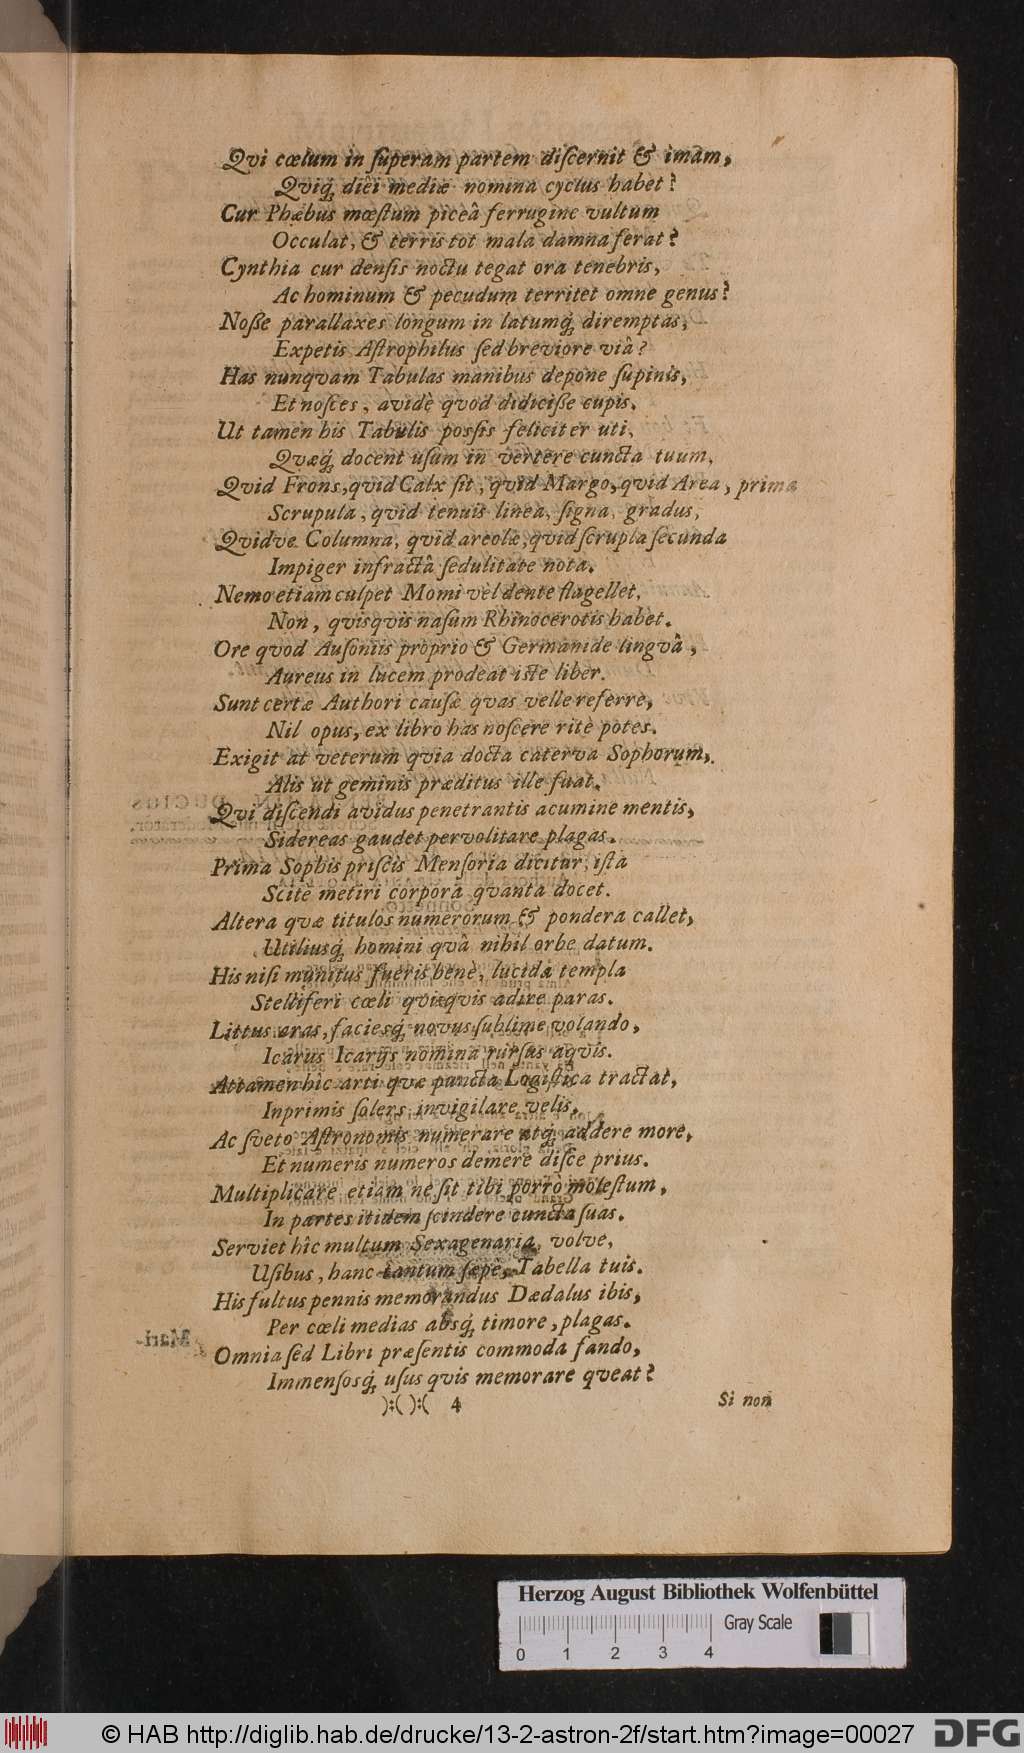 Qvi cœlum in ſuperam partem diſcernit & imam,
Qviq́; diêi mediæ nomina cyclus habet?
Cur Phæbus mœſtum piceâ ferrugine vultum
Occulat, & terris tot mala damna ferat?
Cynthia cur denſis noctu tegat ora tenebris,
Ac hominum & pecudum territet omne genus?
Noße parallaxes longum in latumq́; diremptas,
Expetis Aſtrophilus ſed breviore viâ?
Has nunqvam Tabulas manibus depone ſupinis,
Et noſces, avidè qvod didiciße cupis.
Ut tamen his Tabulis poſſis feliciter uti,
Qvæq́; docent uſum in vertere cuncta tuum,
Qvid Frons, qvid Calx ſit, qvid Margo, qvid Area, prima
Scrupula, qvid tenuis linea, ſigna, gradus,
Qvidve Columna, qvid areolæ, qvid ſcrupla ſecunda
Impiger infractâ ſedulitate nota.
Nemo etiam culpet Momi vel dente flagellet,
Non, qvisqvis naſum Rhinocerotis habet.
Ore qvod Auſoniis proprio & Germanide lingvâ,
Aureus in lucem prodeat iſte liber.
Sunt certæ Authori cauſæ qvas velle referre,
Nil opus, ex libro has noſcere ritè potes.
Exigit at veterum qvia docta caterva Sophorum,
Alis ut geminis præditus ille fuat.
Qvi diſcendi avidus penetrantis acumine mentis,
Sidereas gaudet pervolitare plagas.
Prima Sophis priſcis Menſoria dicitur, iſta
Scitè metiri corpora qvanta docet.
Altera qvæ titulos numerorum & pondera callet,
Utiliusq́; homini qvâ nihil orbe datum.
His niſi munitus fueris benè, lucida templa
Stelliferi cœli qvisqvis adire paras.
Littus aras, faciesq́; novus ſublime volando,
Icarus Icarijs nomina rurſus aqvis.
Attamen hîc arti qvæ puncta Logiſtica tractat,
Inprimis ſolers invigilare velis.
Ac ſveto Aſtronomis numerare atq́; addere more,
Et numeris numeros demere diſce prius.
Multiplicare etiam ne ſit tibi porrò moleſtum,
In partes itidem ſcindere cuncta ſuas.
Serviet hîc multum Sexagenaria, volve,
Uſibus, hanc tantum ſæpè, Tabella tuis.
His fultus pennis memorandus Dædalus ibis,
Per cœli medias absq́; timore, plagas.
Omnia ſed Libri præſentis commoda fando,
Immenſosq́; uſus qvis memorare qveat?
):( ):( 4
Si non
Herzog August Bibliothek Wolfenbüttel
Gray Scale
0 1 2 3 4
© HAB http://diglib.hab.de/drucke/13-2-astron-2f/start.htm?image=00027
DFG